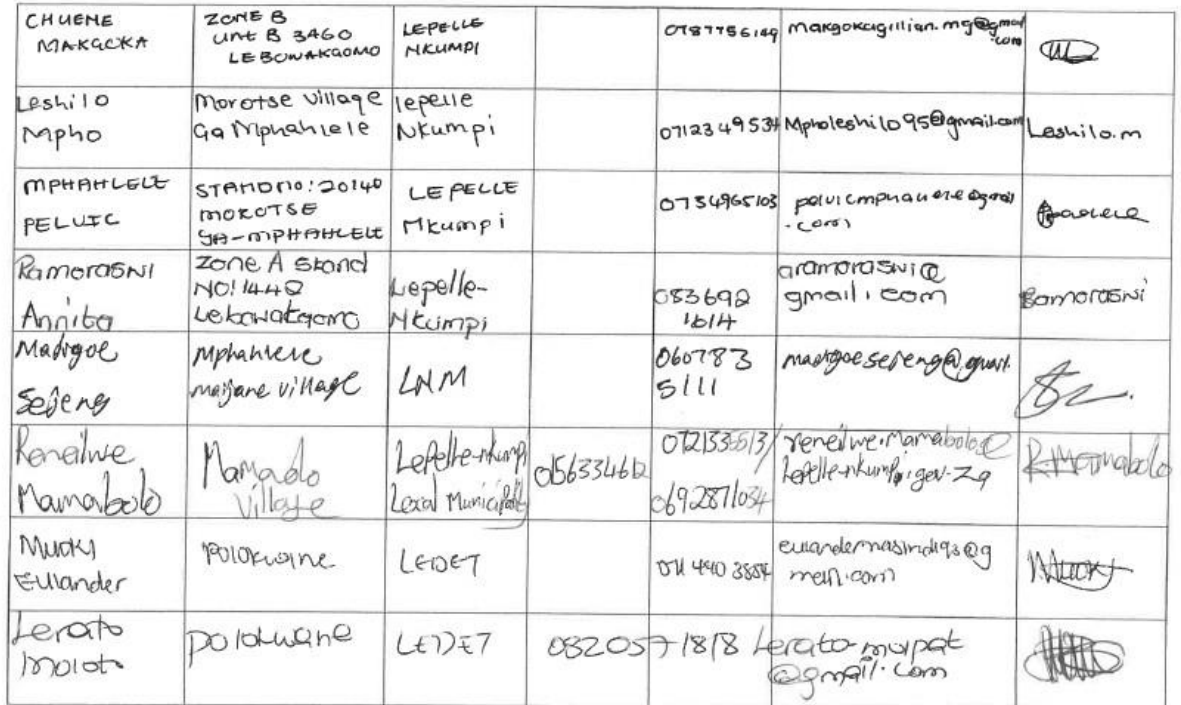 CHUENE
MAKGOKA
ZONE B
UNIT B 3460
LEBOWAKGOMO
LEPELLE
NKUMPI
0787756149
makgokagillian.mg@gmail
.com
Leshilo
Mpho
Morotse Village
Ga Mphahlele
lepelle
Nkumpi
0712349534
Mpholeshilo95@gmail.com
Leshilo.m
MPHAHLELE
PELUIC
STAND NO: 20140
MOROTSE
GA-MPHAHLELE
LEPELLE
Nkumpi
0734965103
.com
Ramoraswi
Annita
Zone A Stand
NO: 1442
Lebowakgomo
Lepelle-
Nkumpi
083692
1614
aramoraswi@
gmail.com
Ramoraswi
Madigoe
Sejeng
Mphahlele
maijane village
LNM
060783
5111
madigoesejeng@gmail.
Reneilwe
Mamabolo
Mamaolo
Village
Lepelle-nkumpi
Local Municipality
0156334612
0721335513/
0692871034
reneilwe.mamabolo@
lepelle-nkumpi.gov.za
R.Mamabolo
Eulander
Polokwane
LEDET
071 440 3884
mail.com
Lerato
Moloto
polokwane
LEDET
0820571818
Lerato-mupat
@gmail.com